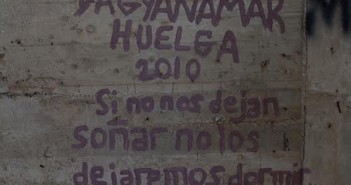 HUELGA
2010
Si no nos dejan
soñar no los
dejaremos dormir